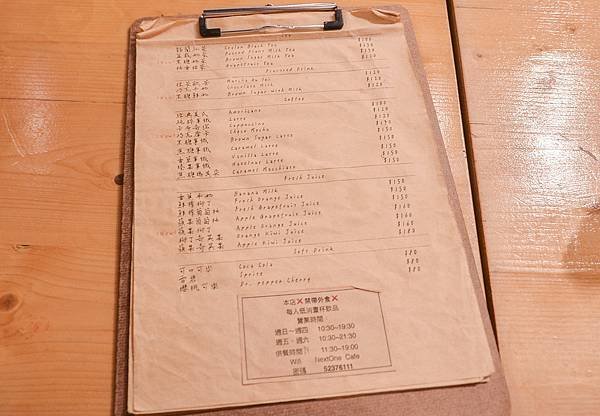 Tea
錫蘭紅茶 Ceylon Black Tea $100
Peanut Flour Milk Tea $150
黑糖奶茶 Brown Sugar Milk Tea $150
Grapefruit Tea
Flavored Drink
抹茶歐蕾 Matcha Au lait $120
巧克力奶 Chocolate Milk $120
黑糖鮮奶 Brown Sugar with Milk $120
Coffee
經典美式 Americano $100
Latte
卡布奇諾 Cappuccino
巧克摩卡 Choco Mocha
黑糖拿鐵 Brown Sugar Latte $150
焦糖拿鐵 Caramel Latte $150
香草拿鐵 Vanilla Latte $150
榛果拿鐵 Hazelnut Latte $150
焦糖瑪奇朵 Caramel Macchiato
Fresh Juice
香蕉牛奶 Banana Milk $150
鮮榨柳丁 Fresh Orange Juice $150
鮮榨葡萄柚 Fresh Grapefruit Juice $150
蘋果葡萄柚 Apple Grapefruit Juice $160
蘋果柳丁 Apple Orange Juice $160
柳丁奇異果 Orange Kiwi Juice
蘋果奇異果 Apple Kiwi Juice
Soft Drink
可口可樂 Coca Cola $80
雪碧 Sprite $80
櫻桃可樂 Dr. pepper Cherry $80
本店❌禁帶外食❌
每人低消壹杯飲品
營業時間：
週日～週四 10:30~19:30
週五、週六 10:30~21:30
供餐時間 11:30~19:00
Wifi NextOne Cafe
密碼 52376111